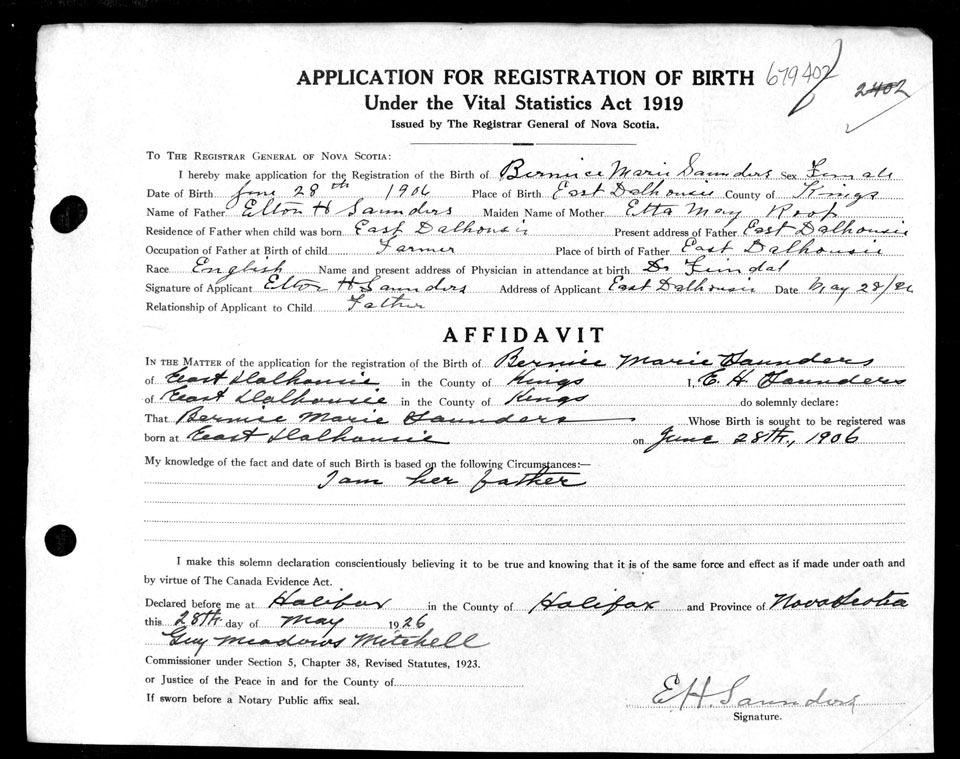 APPLICATION FOR REGISTRATION OF BIRTH 679402
2402
Under the Vital Statistics Act 1919
Issued by The Registrar General of Nova Scotia.
TO THE REGISTRAR GENERAL OF NOVA SCOTIA:
I hereby make application for the Registration of the Birth of Bernice Marie Saunders Sex Female
Date of Birth June 28th 1906 Place of Birth East Dalhousie County of Kings
Name of Father Elton H Saunders Maiden Name of Mother Etta May Roop
Residence of Father when child was born East Dalhousie Present address of Father East Dalhousie
Occupation of Father at Birth of child Farmer Place of birth of Father East Dalhousie
Race English Name and present address of Physician in attendance at birth Dr
Signature of Applicant Elton H Saunders Address of Applicant East Dalhousie Date May 28/26
Relationship of Applicant to Child Father
AFFIDAVIT
IN THE MATTER of the application for the registration of the Birth of Bernice Marie Saunders
of East Dalhousie in the County of Kings I, E. H. Saunders
of East Dalhousie in the County of Kings do solemnly declare:
That Bernice Marie Saunders Whose Birth is sought to be registered was
born at East Dalhousie on June 28th., 1906
My knowledge of the fact and date of such Birth is based on the following Circumstances:—
I am her father
I make this solemn declaration conscientiously believing it to be true and knowing that it is of the same force and effect as if made under oath and
by virtue of The Canada Evidence Act.
Declared before me at Halifax in the County of Halifax and Province of Nova Scotia
this 28th day of May 1926
Guy Meadows Mitchell
Commissioner under Section 5, Chapter 38, Revised Statutes, 1923.
or Justice of the Peace in and for the County of
If sworn before a Notary Public affix seal.
E H Saunders
Signature.